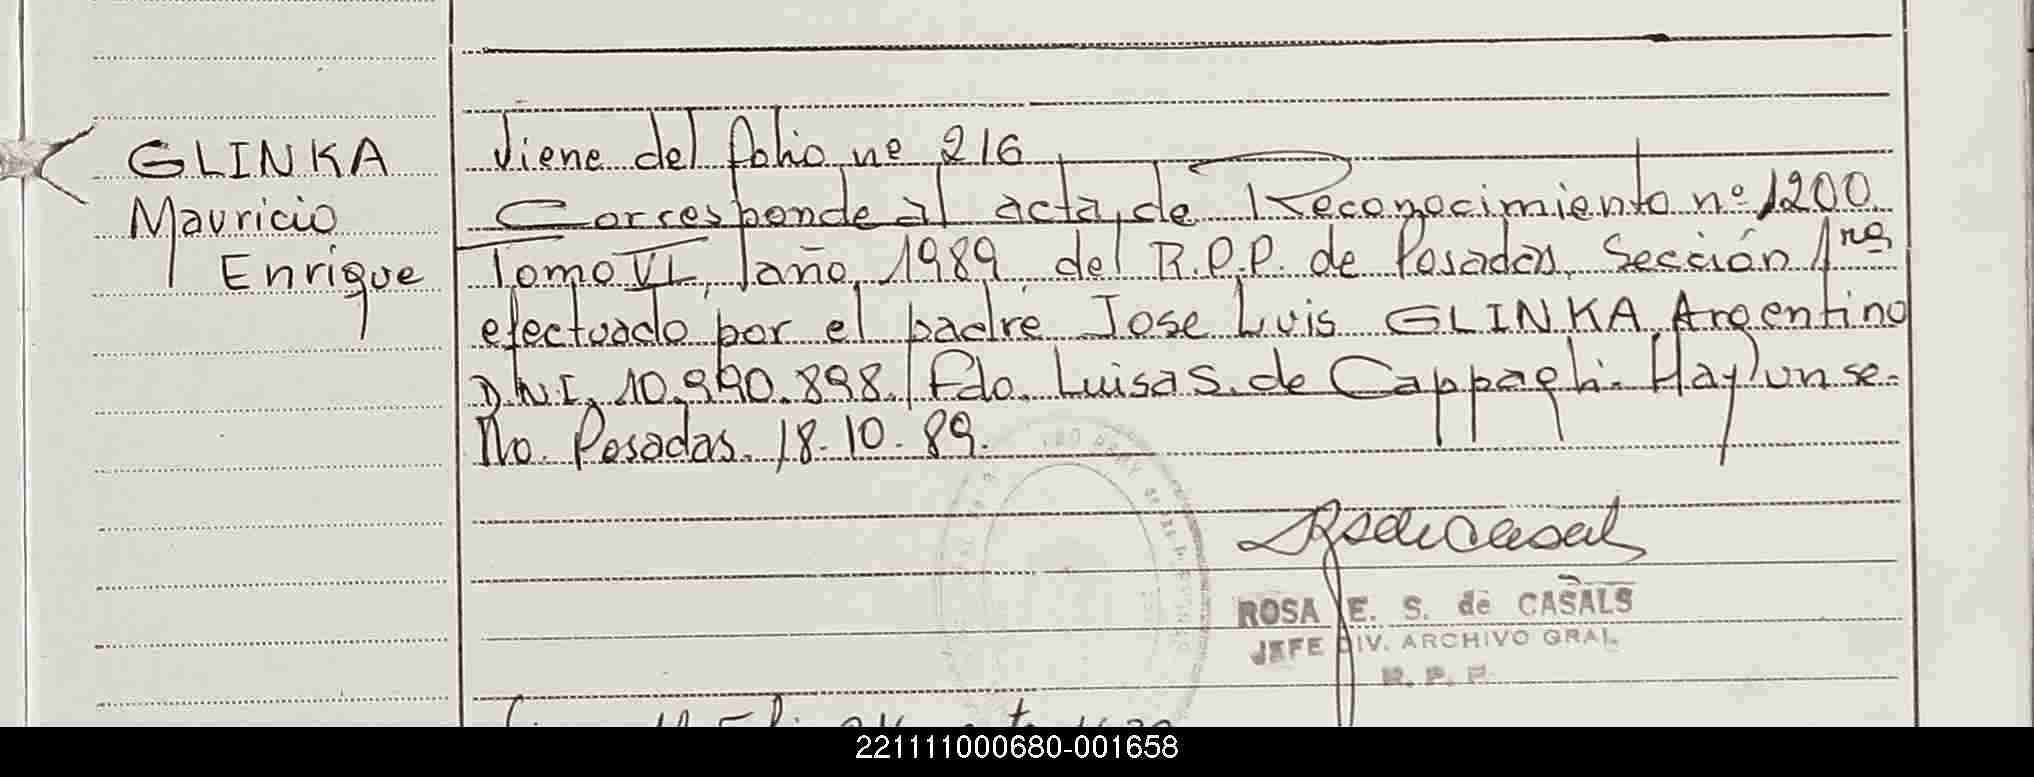 GLINKA
Mauricio
Enrique
Viene del folio nº 216
Corresponde al acta, de Reconocimiento nº 1200
Tomo VI, año, 1989 del R.P.P. de Posadas, Sección 1ra
efectuado por el padre Jose Luis GLINKA, Argentino
D.N.I. 10.990.898. Fdo. Luisa S. de Cappagli. Hay un se-
llo. Posadas. 18-10-89.
ROSA E. S. de CASALS
JEFE DIV. ARCHIVO GRAL.
R. P. P.
221111000680-001658